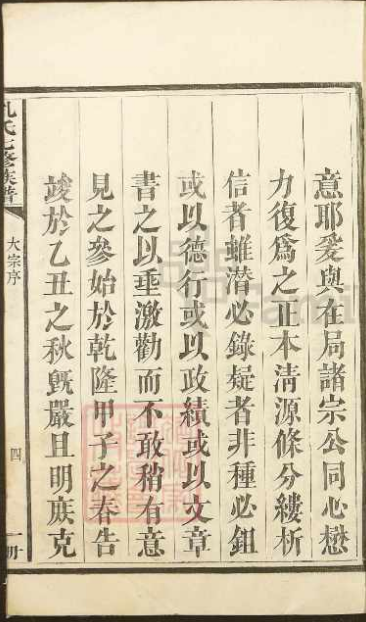 意耶爰與在局諸宗公同心懋
力復爲之正本清源條分縷析
信者雖潛必錄疑者非種必鉏
或以德行或以政績或以文章
書之以垂激勸而不敢稍有意
見之參始於乾隆甲子之春告
竣於乙丑之秋旣嚴且明庶克
孔氏七修族譜
大宗序
四